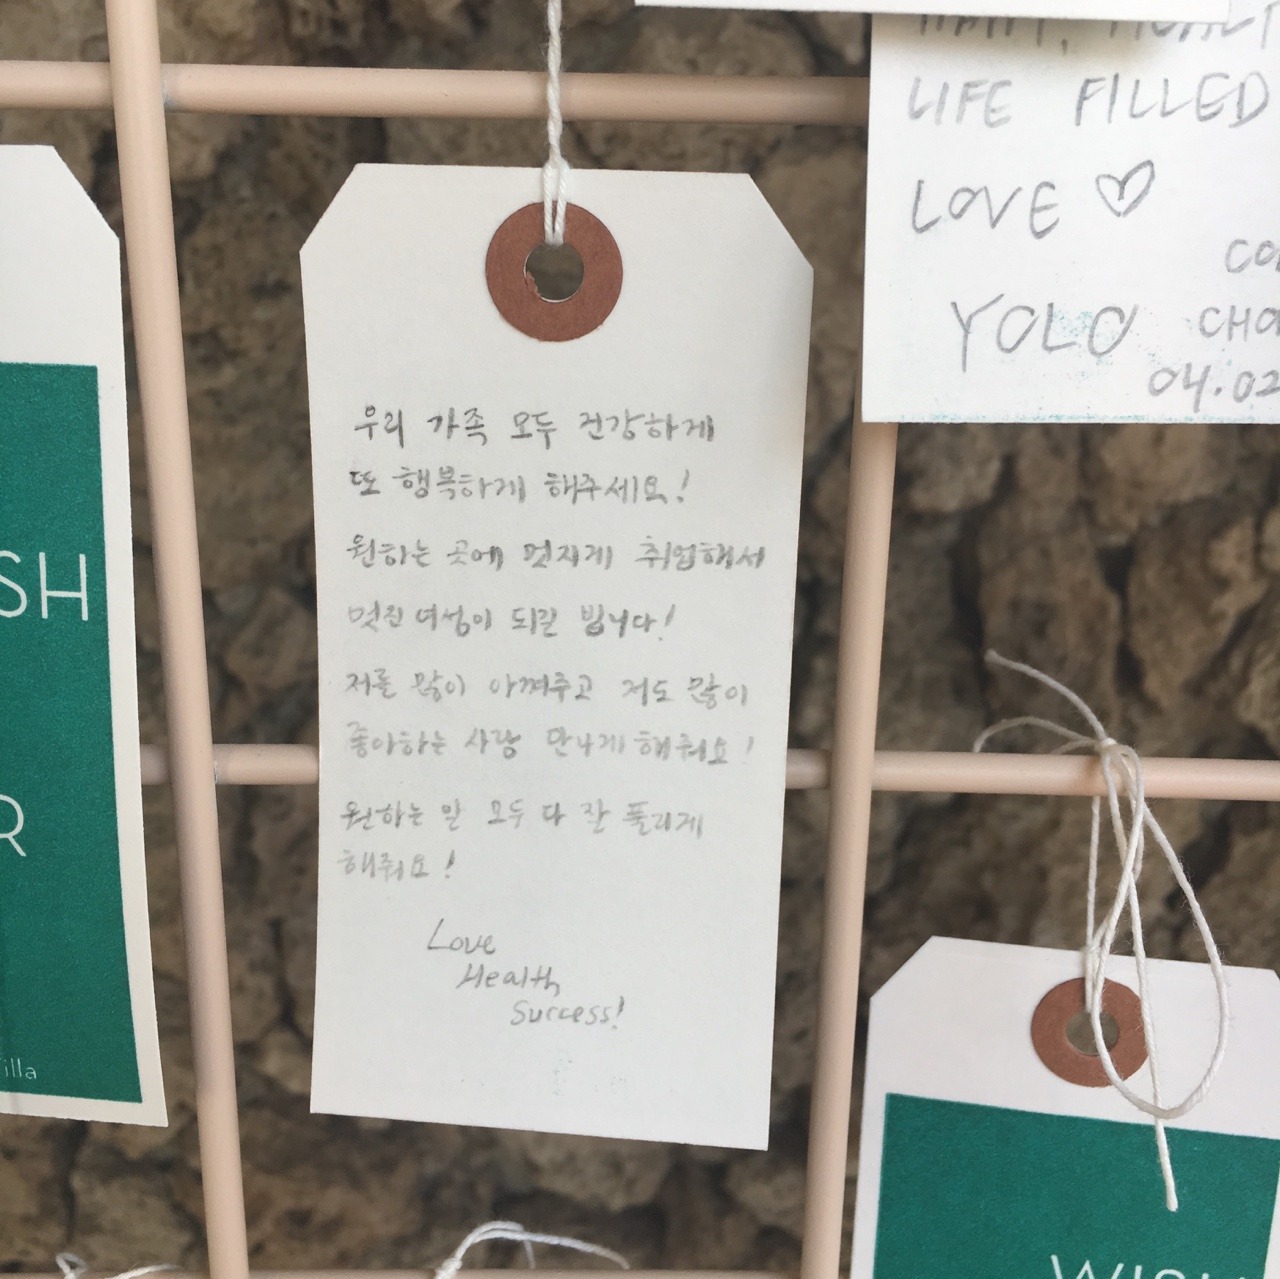 우리 가족 모두 건강하게
또 행복하게 해주세요!
원하는 곳에 멋지게 취업해서
멋진 여성이 되길 빕니다!
저를 많이 아껴주고 저도 많이
좋아하는 사람 만나게 해줘요!
원하는 일 모두 다 잘 풀리게
해줘요!
Love
Health
Success!
LIFE FILLED
LOVE ♡
YOLO
04.02
SH
R
illa